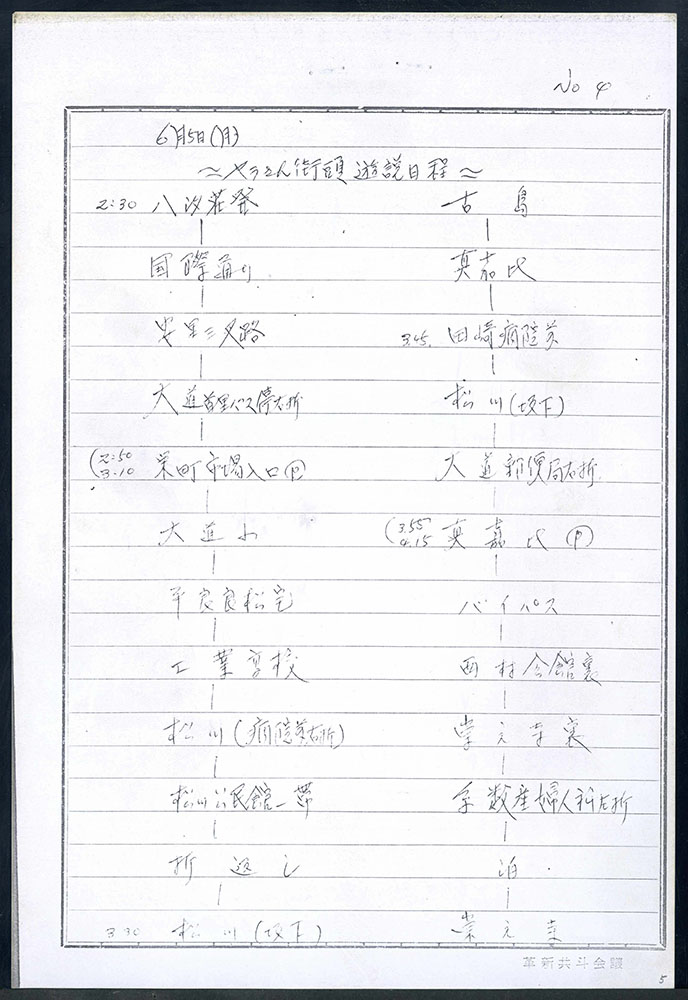 No 4
6月5日(月)
〜ヤラさん街頭遊説日程〜
2:30 八汐荘発
国際通り
安里三叉路
大道首里バス停右折
(2:50 3:10 栄町市場入口 P
大道小
平良良松宅
工業高校
松川(病院前右折)
松川公民館一帯
折返し
3 30 松川(坂下)
古島
真嘉比
3.45. 田崎病院前
松川(坂下)
大道郵便局右折
(3.55 4.15 真嘉比 P
バイパス
西村会館裏
崇元寺裏
産婦人科右折
泊
崇元寺
革新共斗会議
5